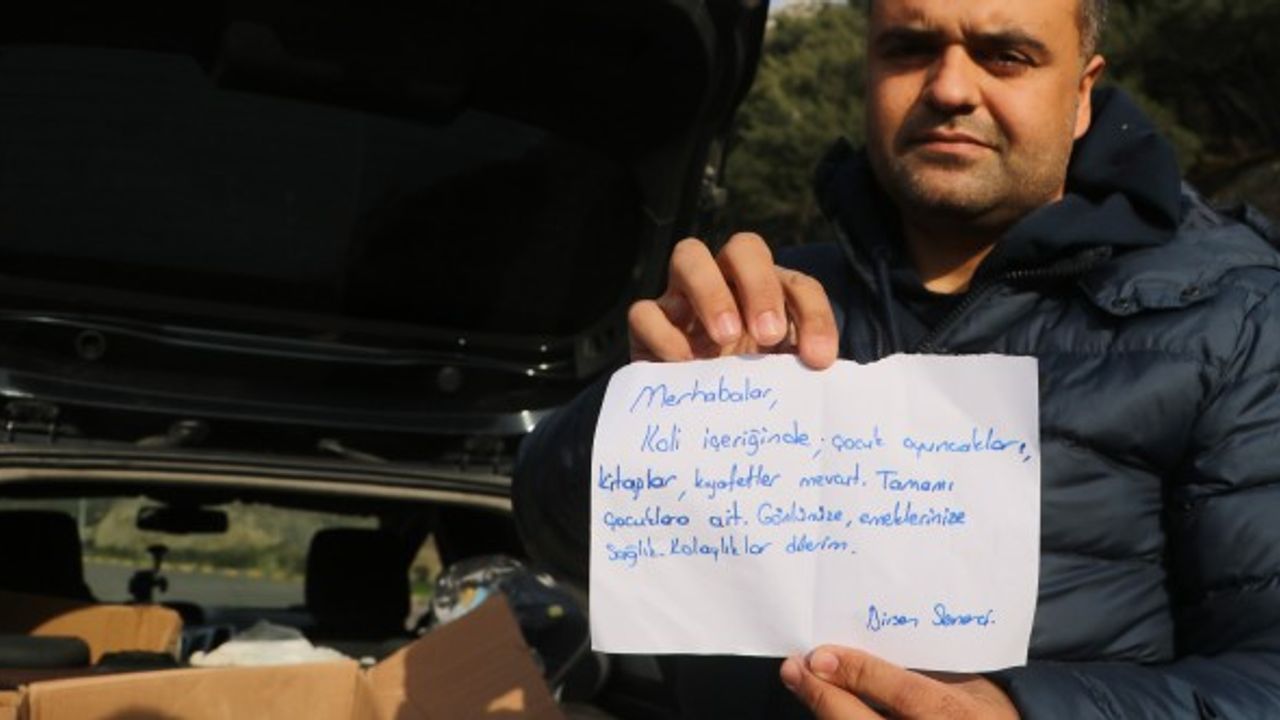 Merhabalar,
Koli içeriğinde; çocuk oyuncakları,
kitaplar, kıyafetler mevcut. Tamamı
çocuklara ait. Gönlünüze, emeklerinize
sağlık. Kolaylıklar dilerim.
Birsen